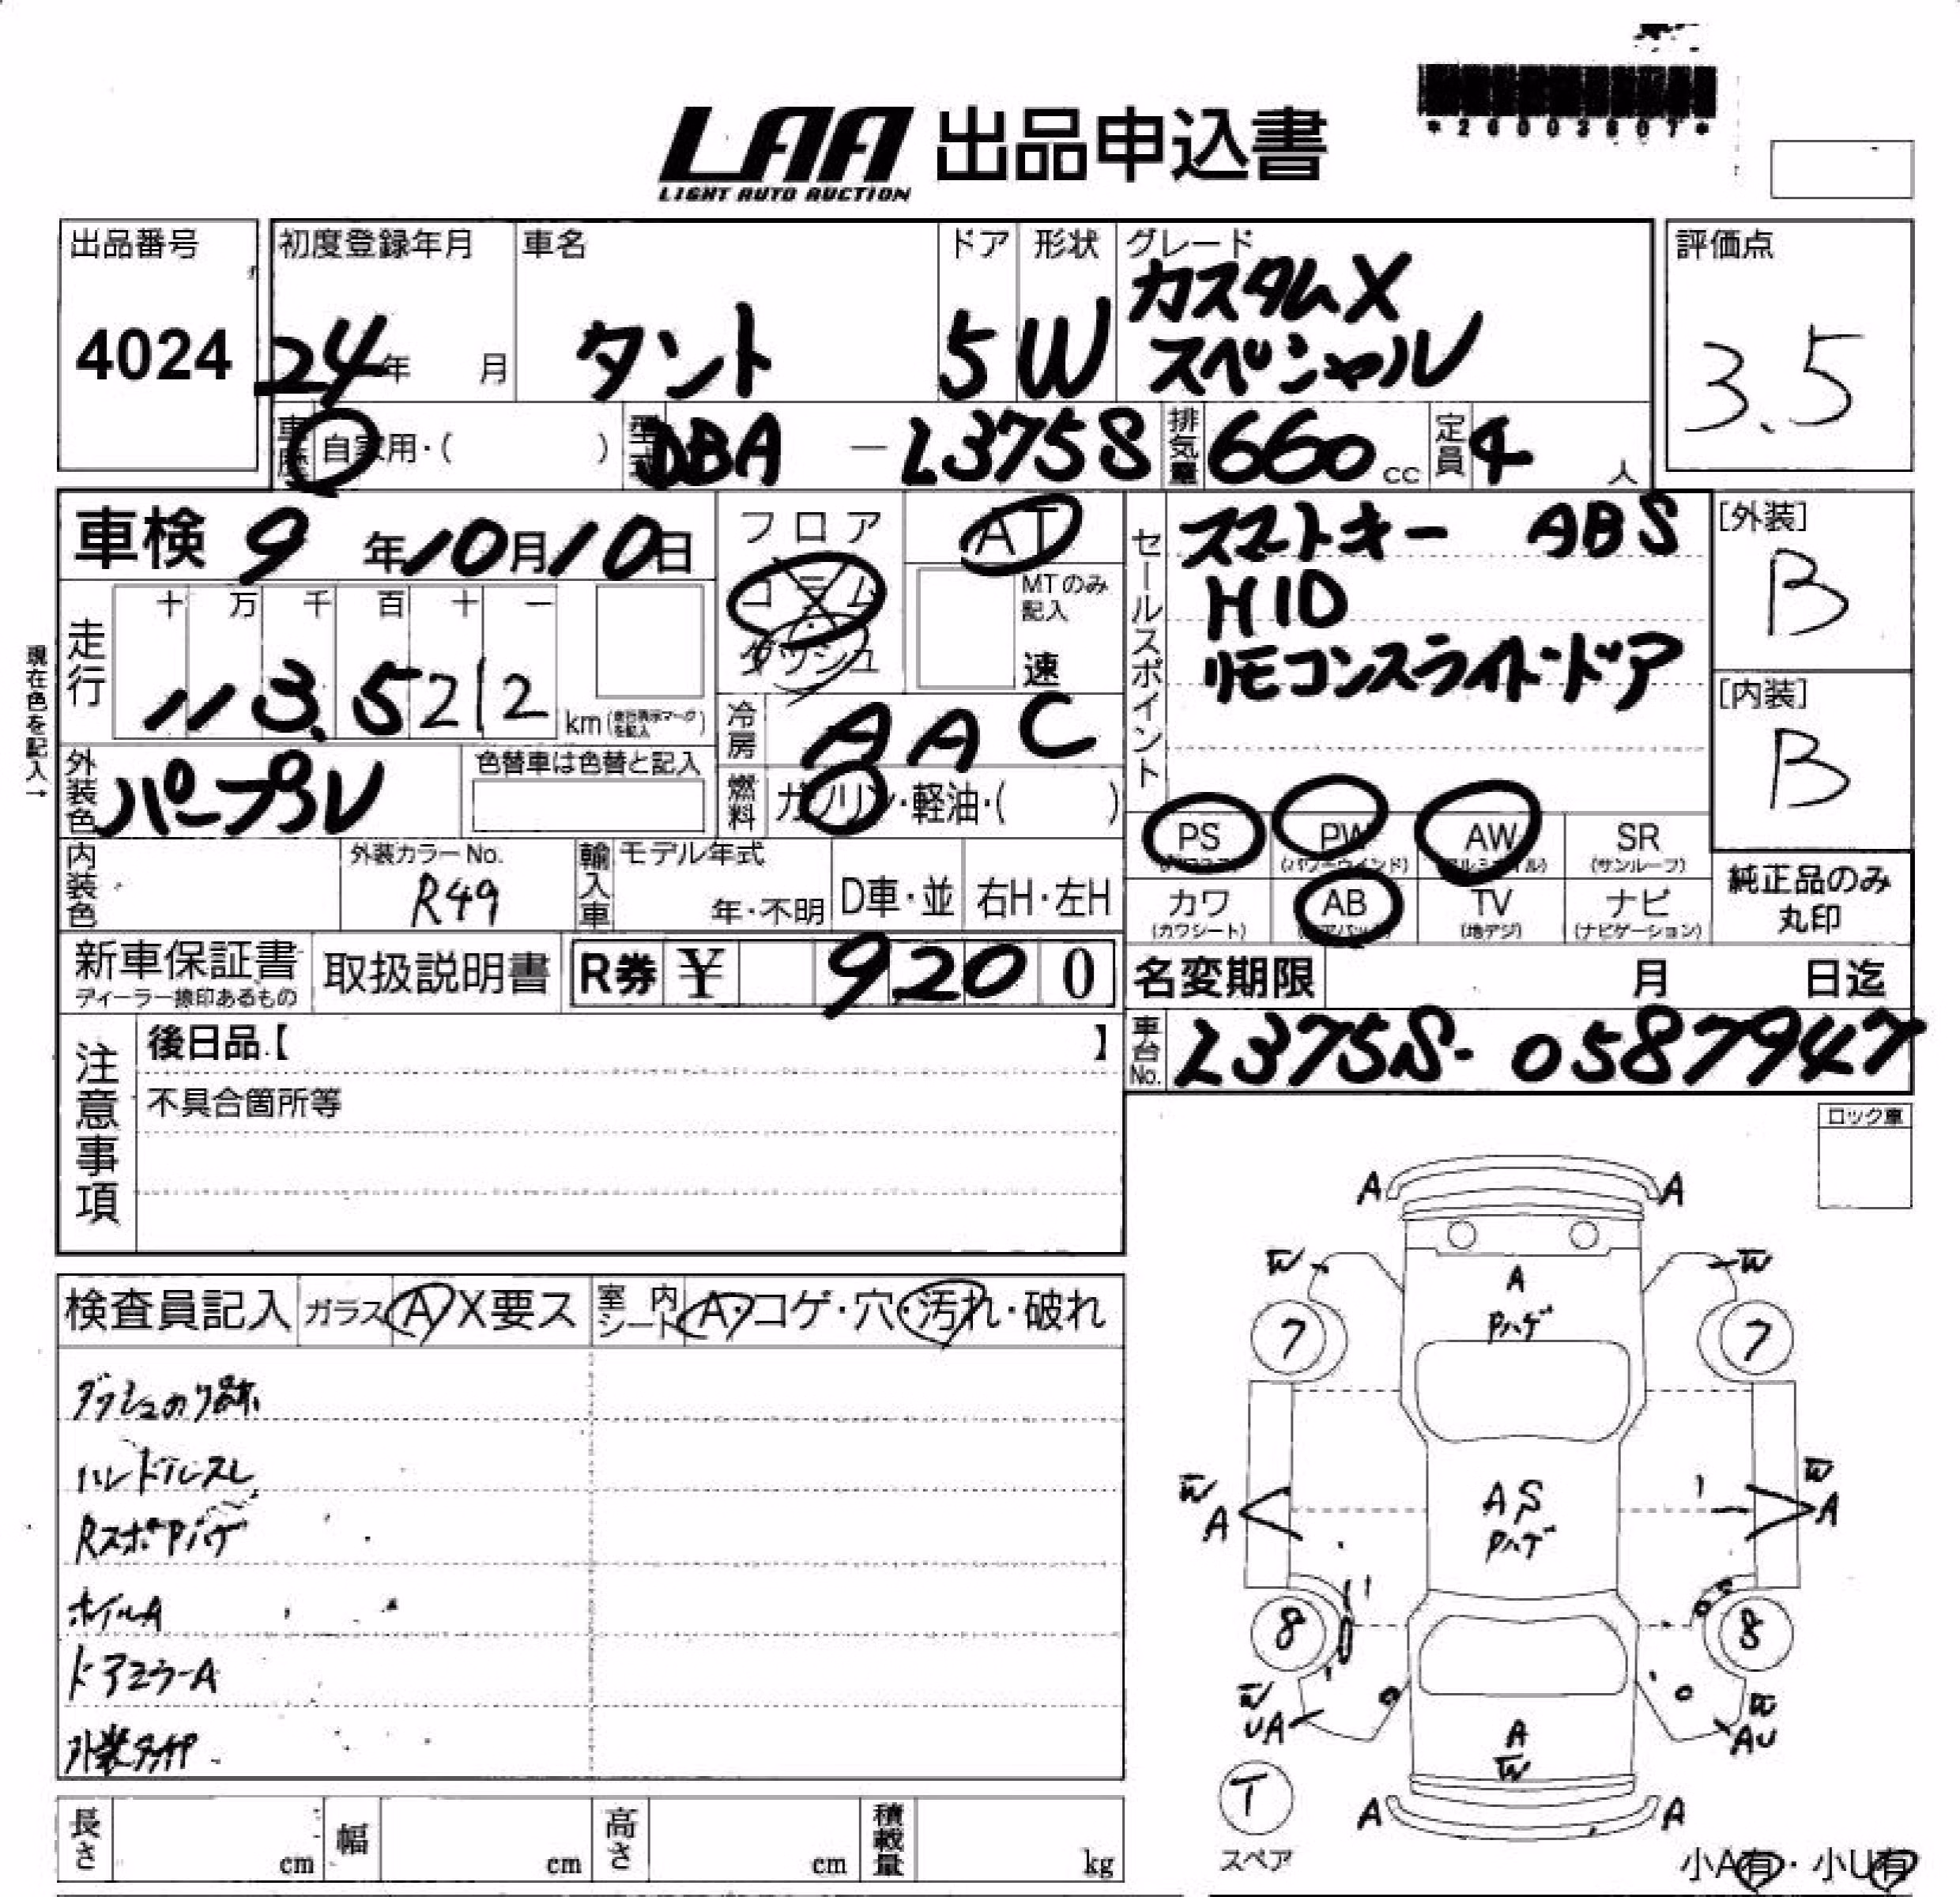 *26003607*
LAA 出品申込書
LIGHT AUTO AUCTION
出品番号
4024
初度登録年月
24年 月
車名
タント
ドア
5
形状
W
グレード
カスタムX
スペシャル
評価点
3.5
車歴 自家用・( )
型式 DBA - L375S
排気量 660 cc
定員 4 人
車検 9 年 10 月 10 日
走行
十 万 千 百 十 一
113,5212 km
現在色を記入→
フロア
コラム
ダッシュ
AT
MTのみ記入
速
冷房 AAC
燃料 ガソリン・軽油・( )
外装色 パープル
色替車は色替と記入
内装色
外装カラーNo.
R49
輸入車 モデル年式
年・不明
D車・並
右H・左H
セールスポイント
スマートキー ABS
HID
リモコンスライドドア
[外装]
B
[内装]
B
PS
PW
AW
SR
(サンルーフ)
カワ
(カワシート)
AB
TV
(地デジ)
ナビ
(ナビゲーション)
純正品のみ
丸印
新車保証書
ディーラー捺印あるもの
取扱説明書
R券 ¥ 920 0
名変期限 月 日迄
車台No. L375S-0587947
注意事項
後日品【 】
不具合箇所等
ロック車
検査員記入
ガラス A X要ス
室内シート A・コゲ・穴・汚れ・破れ
ダッシュのり跡
ハンドルスレ
RスポPハゲ
ホイルA
ドアミラーA
A A
W W
A
Pハゲ
7 7
W W
A A
AS
Pハゲ
8 8
W W
UA AU
A
W
T
スペア
A A
長さ cm
幅 cm
高さ cm
積載量 kg
小A有・小U有